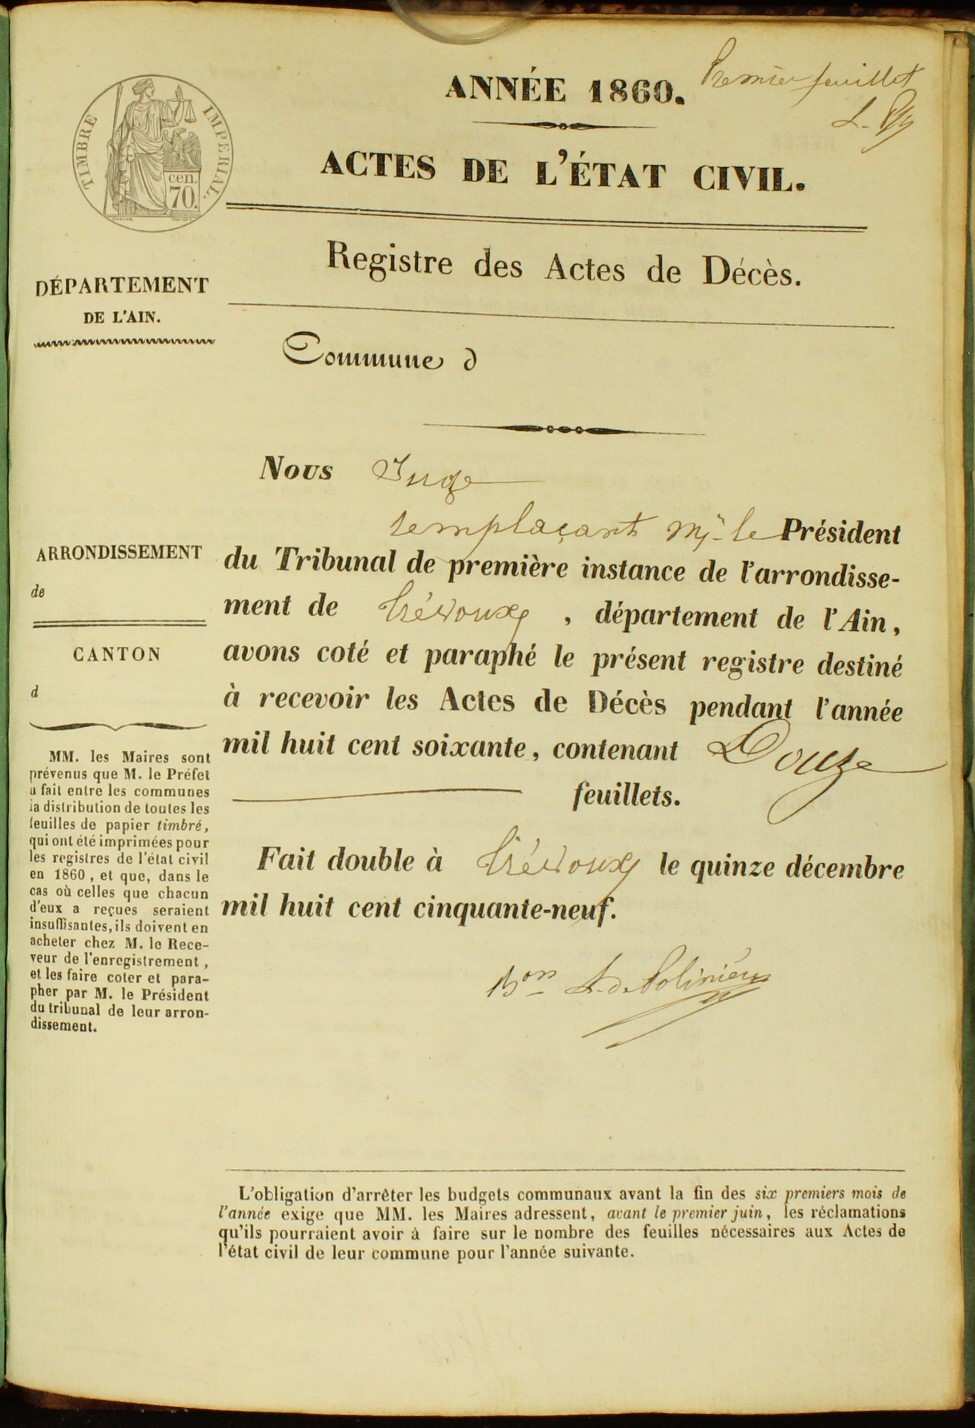 Premier feuillet
ANNÉE 1860.
TIMBRE IMPÉRIAL.
cen.
70.
ACTES DE L'ÉTAT CIVIL.
Registre des Actes de Décès.
DÉPARTEMENT
DE L'AIN.
Commune d
Nous Juge
remplaçant Mr le Président
du Tribunal de première instance de l'arrondisse-
ment de Trévoux, département de l'Ain,
avons coté et paraphé le présent registre destiné
à recevoir les Actes de Décès pendant l'année
mil huit cent soixante, contenant Douze
feuillets.
Fait double à Trévoux le quinze décembre
mil huit cent cinquante-neuf.
Bon
ARRONDISSEMENT
de
CANTON
d
MM. les Maires sont
prévenus que M. le Préfet
a fait entre les communes
la distribution de toutes les
feuilles de papier timbré,
qui ont été imprimées pour
les registres de l'état civil
en 1860, et que, dans le
cas où celles que chacun
d'eux a reçues seraient
insuffisantes, ils doivent en
acheter chez M. le Rece-
veur de l'enregistrement,
et les faire coter et para-
pher par M. le Président
du tribunal de leur arron-
dissement.
L'obligation d'arrêter les budgets communaux avant la fin des six premiers mois de
l'année exige que MM. les Maires adressent, avant le premier juin, les réclamations
qu'ils pourraient avoir à faire sur le nombre des feuilles nécessaires aux Actes de
l'état civil de leur commune pour l'année suivante.